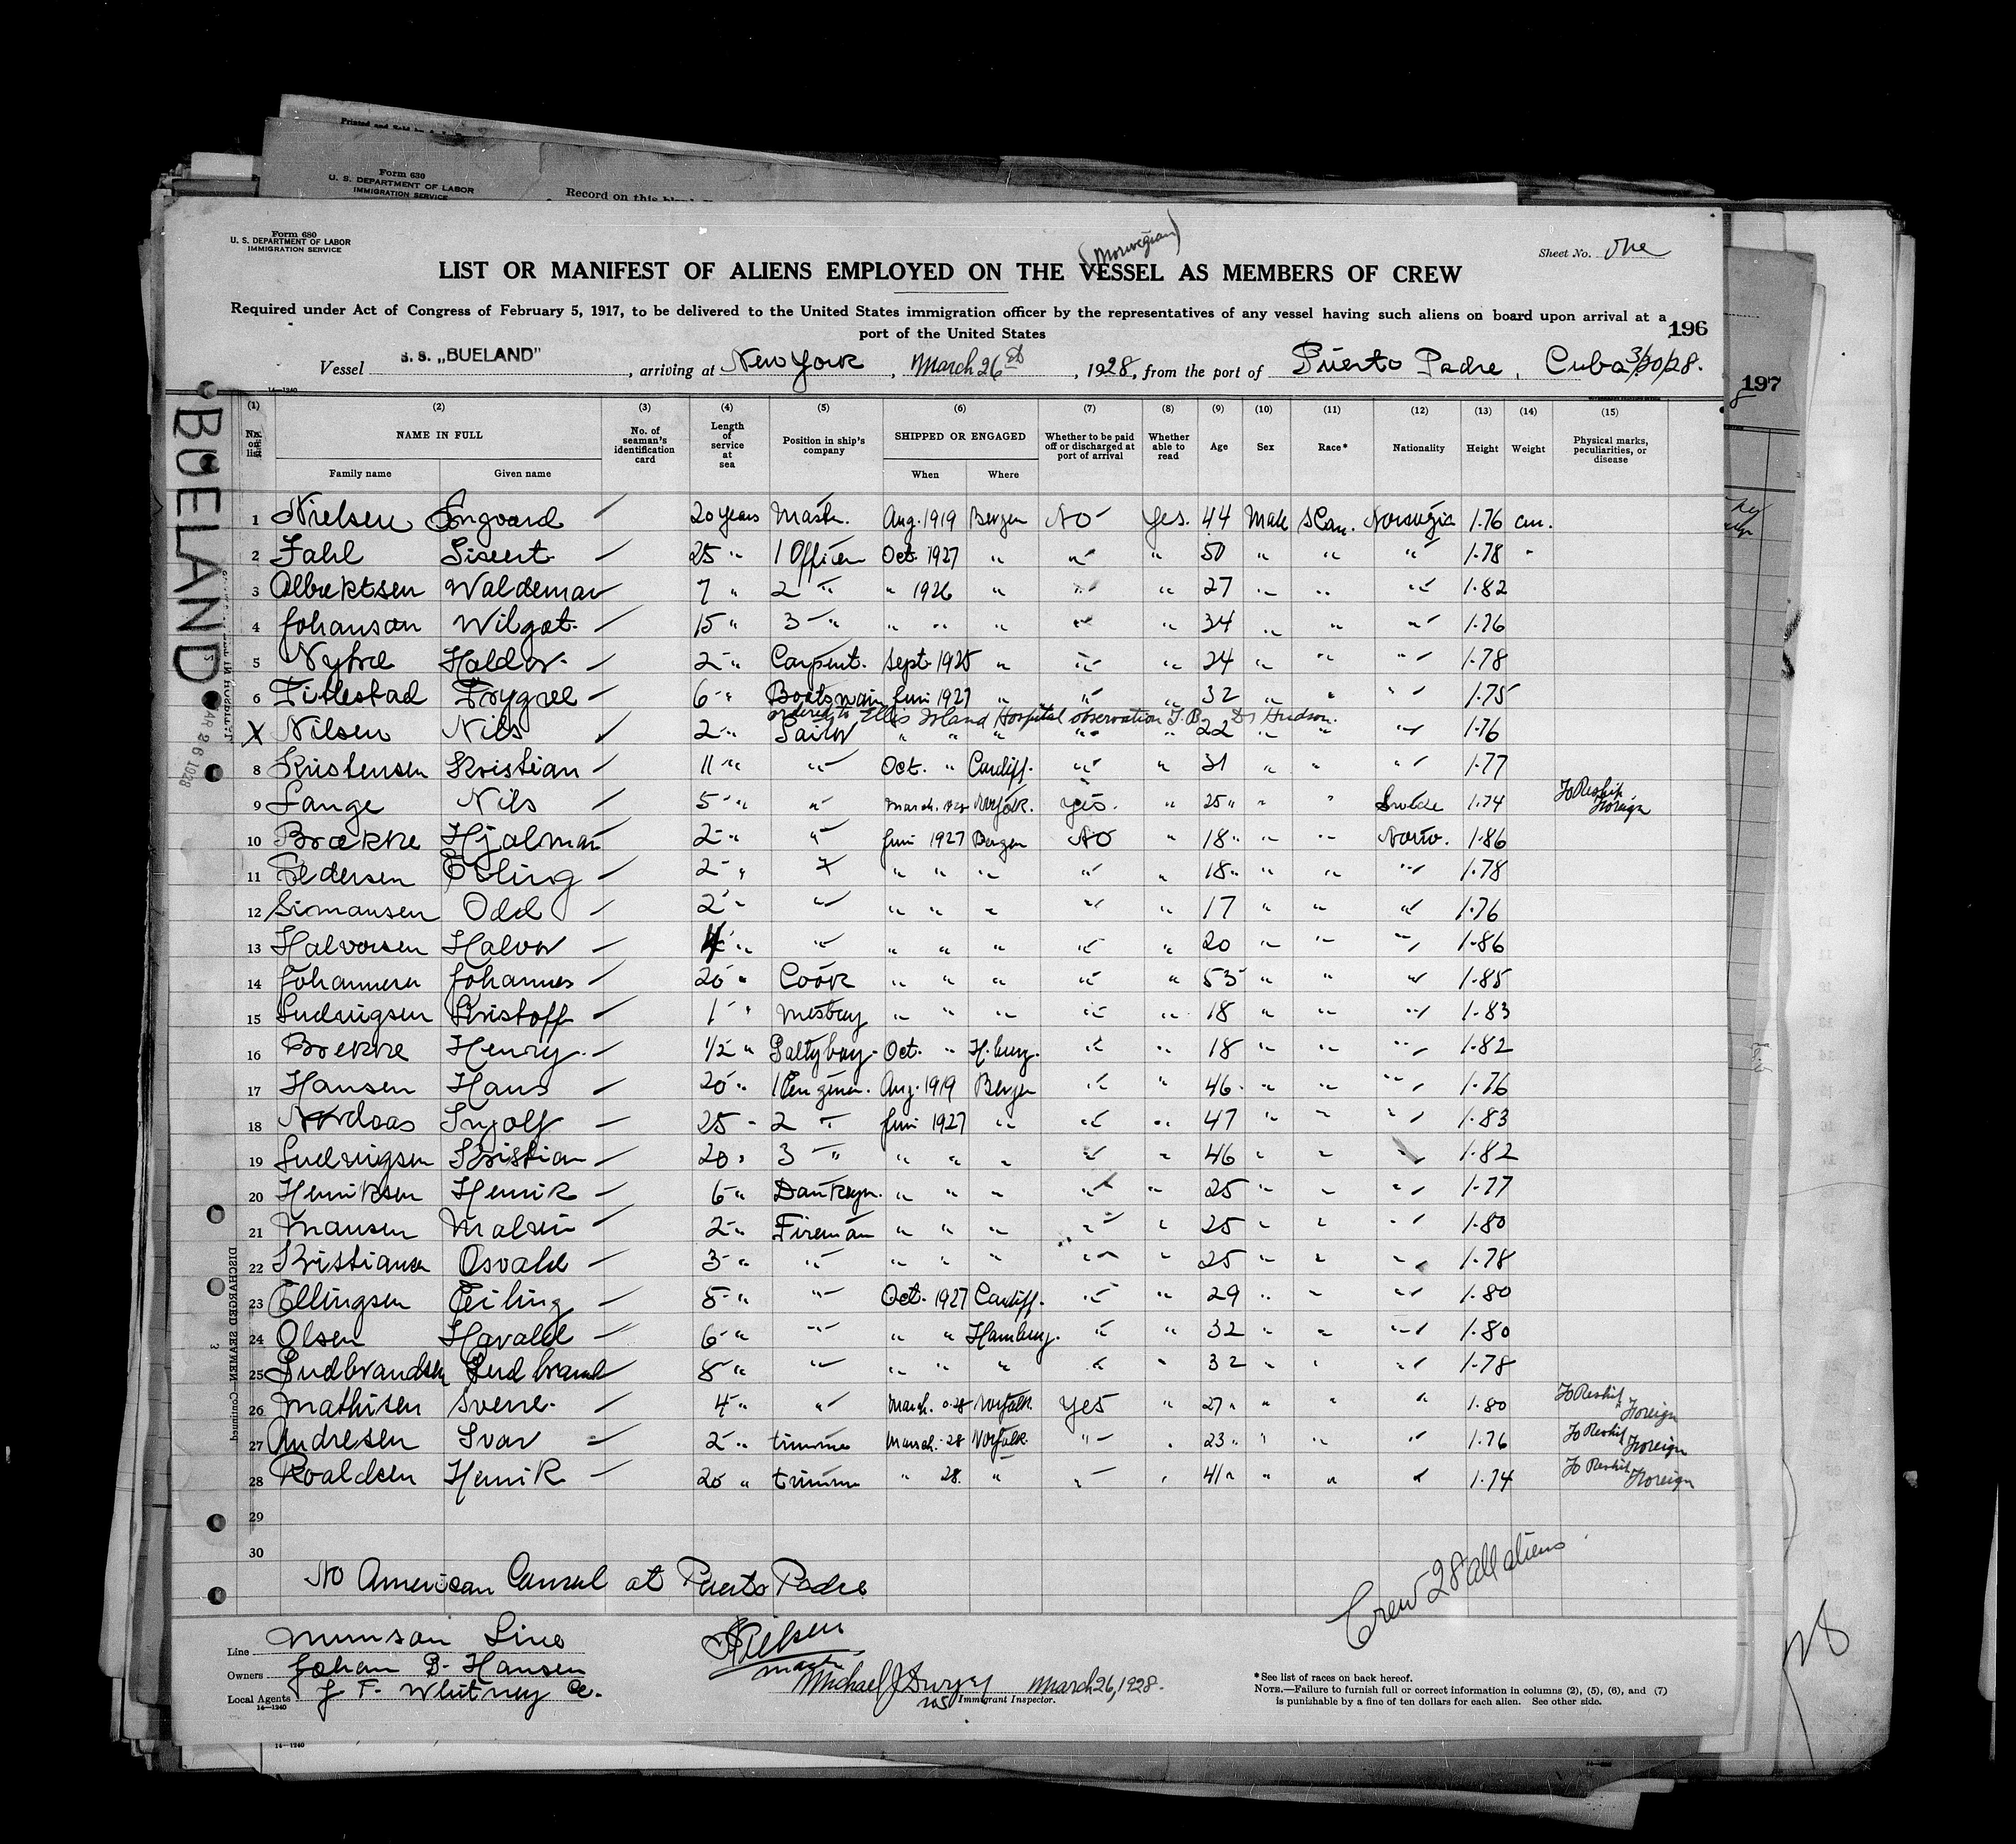 Printed and Sold by
Form 630
U. S. DEPARTMENT OF LABOR
IMMIGRATION SERVICE
Record on this
Form 680
U. S. DEPARTMENT OF LABOR
IMMIGRATION SERVICE
(Norwegian)
Sheet No. One
LIST OR MANIFEST OF ALIENS EMPLOYED ON THE VESSEL AS MEMBERS OF CREW
Required under Act of Congress of February 5, 1917, to be delivered to the United States immigration officer by the representatives of any vessel having such aliens on board upon arrival at a
port of the United States
196
Vessel S. S. „BUELAND", arriving at New York, March 26, 1928, from the port of Puerto Padre, Cuba 3/20/28.
197
14—1240
BUELAND
MAR 26 1928
DISCHARGED SEAMEN—Continued
(1) (2) (3) (4) (5) (6) (7) (8) (9) (10) (11) (12) (13) (14) (15)
No. on list NAME IN FULL No. of seaman's identification card Length of service at sea Position in ship's company SHIPPED OR ENGAGED Whether to be paid off or discharged at port of arrival Whether able to read Age Sex Race* Nationality Height Weight Physical marks, peculiarities, or disease
Family name Given name When Where
1 Nielsen 20 years Mastr. Aug. 1919 Bergen No Yes. 44 Male Scan. Norwegia 1.76 cm.
2 Fahl 25 " 1 Officer Oct. 1927 " " " 50 " " " 1.78 "
3 Albrektsen Waldemar 7 " 2 " " 1926 " " " 27 " " " 1.82
4 Johanson Wilgot. 15 " 3 " " " " " " 34 " " " 1.76
5 Haldor. 2 " Carpent. Sept. 1925 " " " 24 " " " 1.78
6 Fitlestad Trygve 6 " Boatswain Juni 1927 " " " 32 " " " 1.75
ordered to Ellis Island Hospital observation T.B. Dr Hudson.
X Nilsen Nils 2 " Sailor " " " " " 22 " " " 1.76
8 Kristensen Kristian 11 " " Oct. " Cardiff. " " 31 " " " 1.77
9 Lange Nils 5 " " March. Norfolk. Yes. " 25 " " " Swede 1.74 To Reship Foreign
10 Brekke Hjalmar 2 " " Juni 1927 Bergen No " 18 " " " Norw. 1.86
11 Pedersen Erling 2 " " " " " " " 18 " " " " 1.78
12 Simonsen Odd 2 " " " " " " " 17 " " " 1.76
13 Halvorsen Halvor 4 " " " " " " " 20 " " " 1.86
14 Johannesen Johannes 20 " Cook " " " " " 53 " " " 1.85
15 Ludvigsen Kristoff 1 " Mesboy " " " " " 18 " " " 1.83
16 Brekke Henry. 1/2 " Galtyboy. Oct. " H.burg. " " 18 " " " 1.82
17 Hansen Hans 20 " 1 Enginer. Aug. 1919 Bergen " " 46 " " " 1.76
18 Nordaas Ingolf 25 " 2 " Juni 1927 " " " 47 " " " 1.83
19 Ludvigsen Kristian 20 " 3 " " " " " " 46 " " " 1.82
20 Henriksen Henrik 6 " " " " " " 25 " " " 1.77
21 Malvin 2 " Fireman " " " " " 25 " " " 1.80
22 Kristiansen Osvald 3 " " " " " " " 25 " " " 1.78
23 Ellingsen 5 " " Oct. 1927 Cardiff. " " 29 " " " 1.80
24 Olsen Havald 6 " " " " Hamburg. " " 32 " " " 1.80
25 Gudbrandsen Gudbrand 8 " " " " " " " 32 " " " 1.78
26 Mathisen Sverre. 4 " " March. 28 Norfolk. Yes " 27 " " " " 1.80 To Reship Foreign
27 Andresen Ivar 2 " trimme March. 28 Norfolk. " " 23 " " " " 1.76 To Reship Foreign
28 Roaldsen Henrik 20 " trimme " 28. " " " 41 " " " " 1.74 To Reship Foreign
29
30
No American Consul at Puerto Padre
Crew 28 all aliens
Line Munson Line
Owners Johan G. Hansen
Local Agents J F. Whitney Co.
14—1240
Nielsen
Mastr.
Michael J. March 26, 1928.
Immigrant Inspector.
*See list of races on back hereof.
NOTE.—Failure to furnish full or correct information in columns (2), (5), (6), and (7)
is punishable by a fine of ten dollars for each alien. See other side.
14—1240